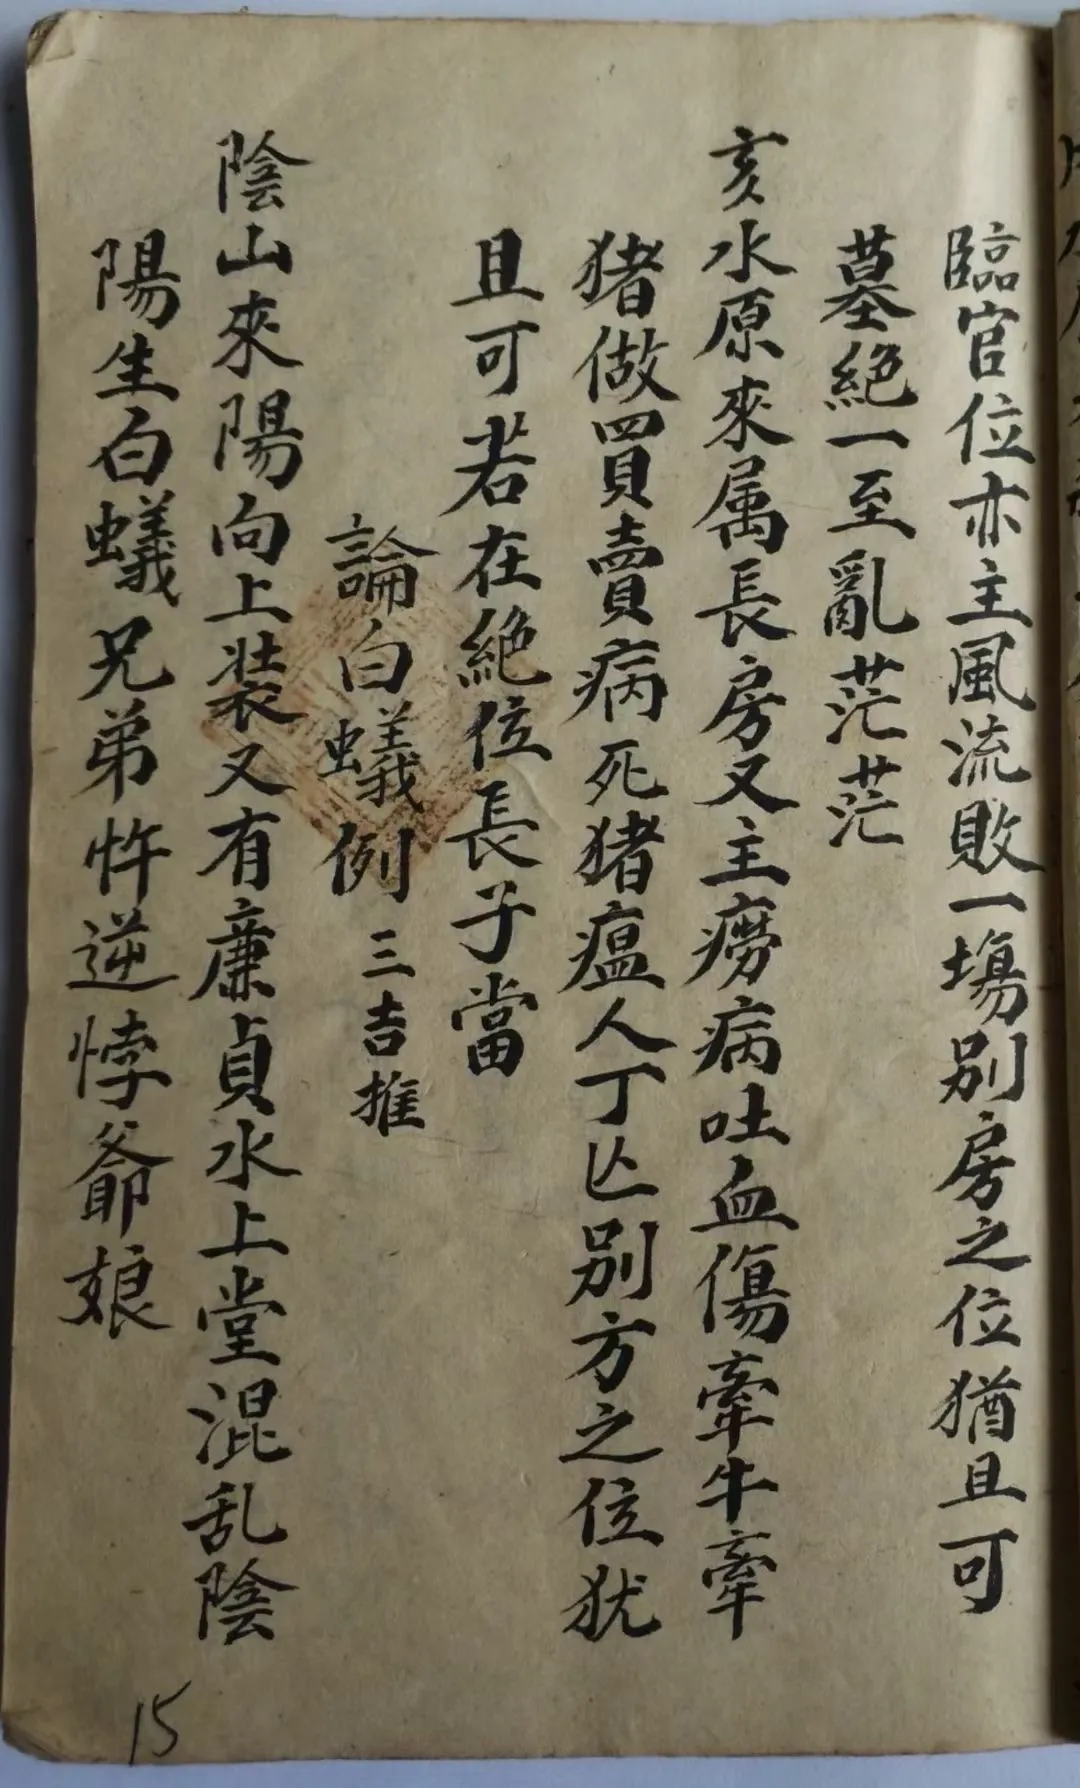 臨官位亦主風流敗一塲别房之位猶且可
墓絶一至亂茫茫
亥水原來属長房又主癆病吐血傷牽牛牽
猪做買賣病死猪瘟人丁亾别方之位犹
且可若在絶位長子當
論白蟻例三吉推
陰山來陽向上装又有廉貞水上堂混乱陰
陽生白蟻兄弟忤逆悖爺娘
15